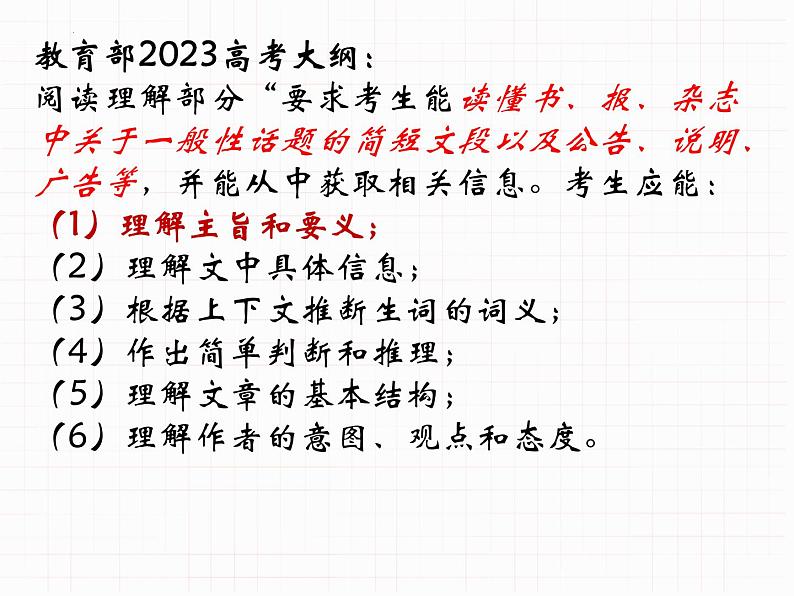 教育部2023高考大纲：
阅读理解部分“要求考生能读懂书、报、杂志
中关于一般性话题的简短文段以及公告、说明、
广告等，并能从中获取相关信息。考生应能：
（1）理解主旨和要义；
（2）理解文中具体信息；
（3）根据上下文推断生词的词义；
（4）作出简单判断和推理；
（5）理解文章的基本结构；
（6）理解作者的意图、观点和态度。